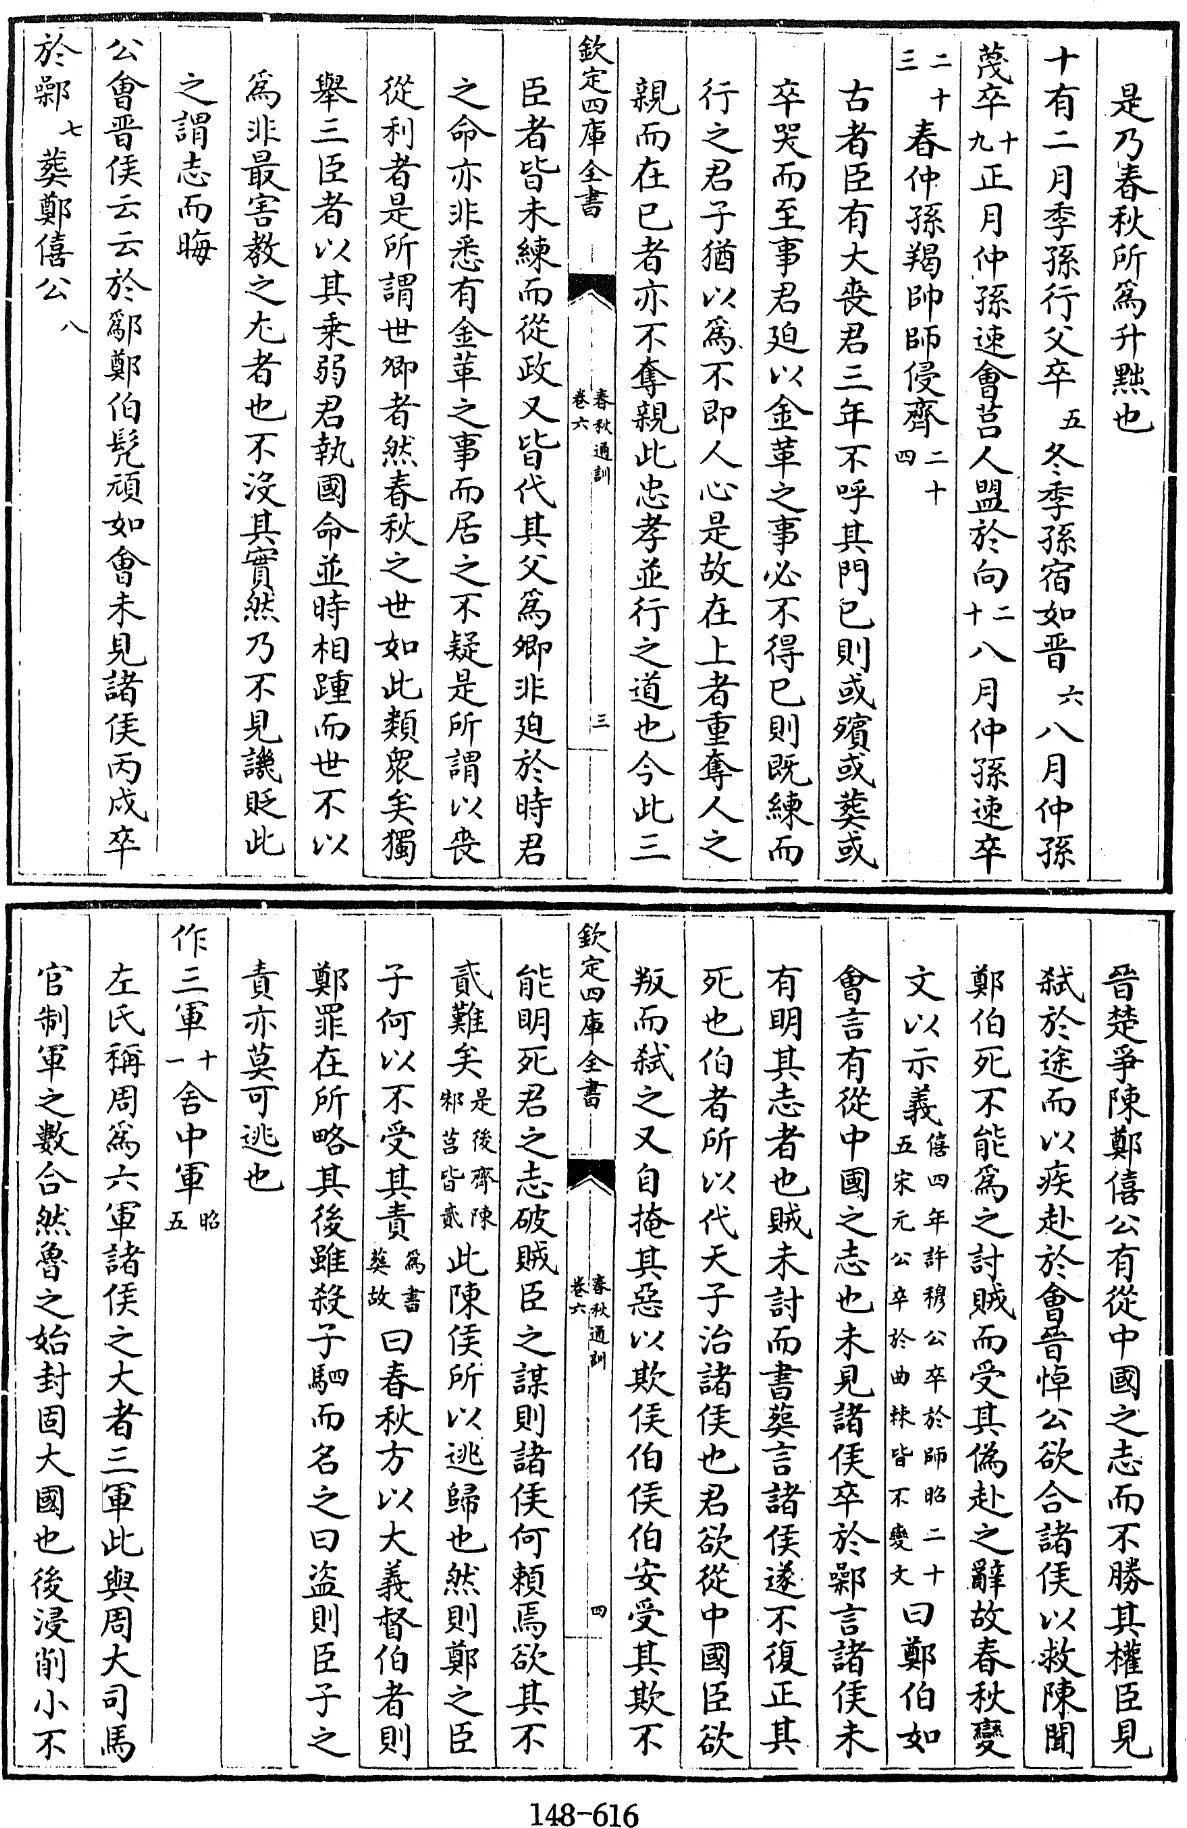 是乃春秋所爲升黜也
十有二月季孫行父卒五冬季孫宿如晋六八月仲孫
蔑卒十九正月仲孫速會莒人盟於向二十八月仲孫速卒
二十三春仲孫羯帥師侵齊二十四
古者臣有大喪君三年不呼其門已則或殯或葬或
卒哭而至事君廹以金革之事必不得已則既練而
行之君子猶以爲不即人心是故在上者重奪人之
親而在已者亦不奪親此忠孝並行之道也今此三
欽定四庫全書 春秋通訓 卷六 三
臣者皆未練而從政又皆代其父爲卿非廹於時君
之命亦非悉有金革之事而居之不疑是所謂以喪
從利者是所謂世卿者然春秋之世如此類衆矣獨
舉三臣者以其乘弱君執國命並時相踵而世不以
爲非最害教之尤者也不沒其實然乃不見譏貶此
之謂志而晦
公會晋侯云云於鄬鄭伯髡頑如會未見諸侯丙戍卒
於鄵七葬鄭僖公八
晉楚爭陳鄭僖公有從中國之志而不勝其權臣見
弑於途而以疾赴於會晉悼公欲合諸侯以救陳聞
鄭伯死不能爲之討賊而受其偽赴之辭故春秋變
文以示義僖四年許穆公卒於師昭二十五宋元公卒於曲棘皆不變文曰鄭伯如
會言有從中國之志也未見諸侯卒於鄵言諸侯未
有明其志者也賊未討而書葬言諸侯遂不復正其
死也伯者所以代天子治諸侯也君欲從中國臣欲
叛而弑之又自掩其惡以欺侯伯侯伯安受其欺不
欽定四庫全書 春秋通訓 卷六 四
能明死君之志破賊臣之謀則諸侯何賴焉欲其不
貳難矣是後齊陳邾莒皆貳此陳侯所以逃歸也然則鄭之臣
子何以不受其責爲書葬故曰春秋方以大義督伯者則
鄭罪在所略其後雖殺子駟而名之曰盜則臣子之
責亦莫可逃也
作三軍十一舍中軍昭五
左氏稱周爲六軍諸侯之大者三軍此與周大司馬
官制軍之數合然魯之始封固大國也後浸削小不
148-616